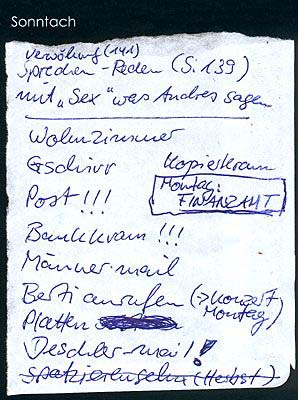 Sonntach
Verwöhung (141)
Sprechen - Reden (S. 139)
mit „Sex" was Andres sagen
Wohnzimmer
Gschirr Kopierkram
Post!!! Montag:
FINANZAMT
Bankkram!!!
Männer-mail
Berti anrufen (-> Konzert
Montag)
Platten
Deschler-mail!
Spazierengehn (Herbst)